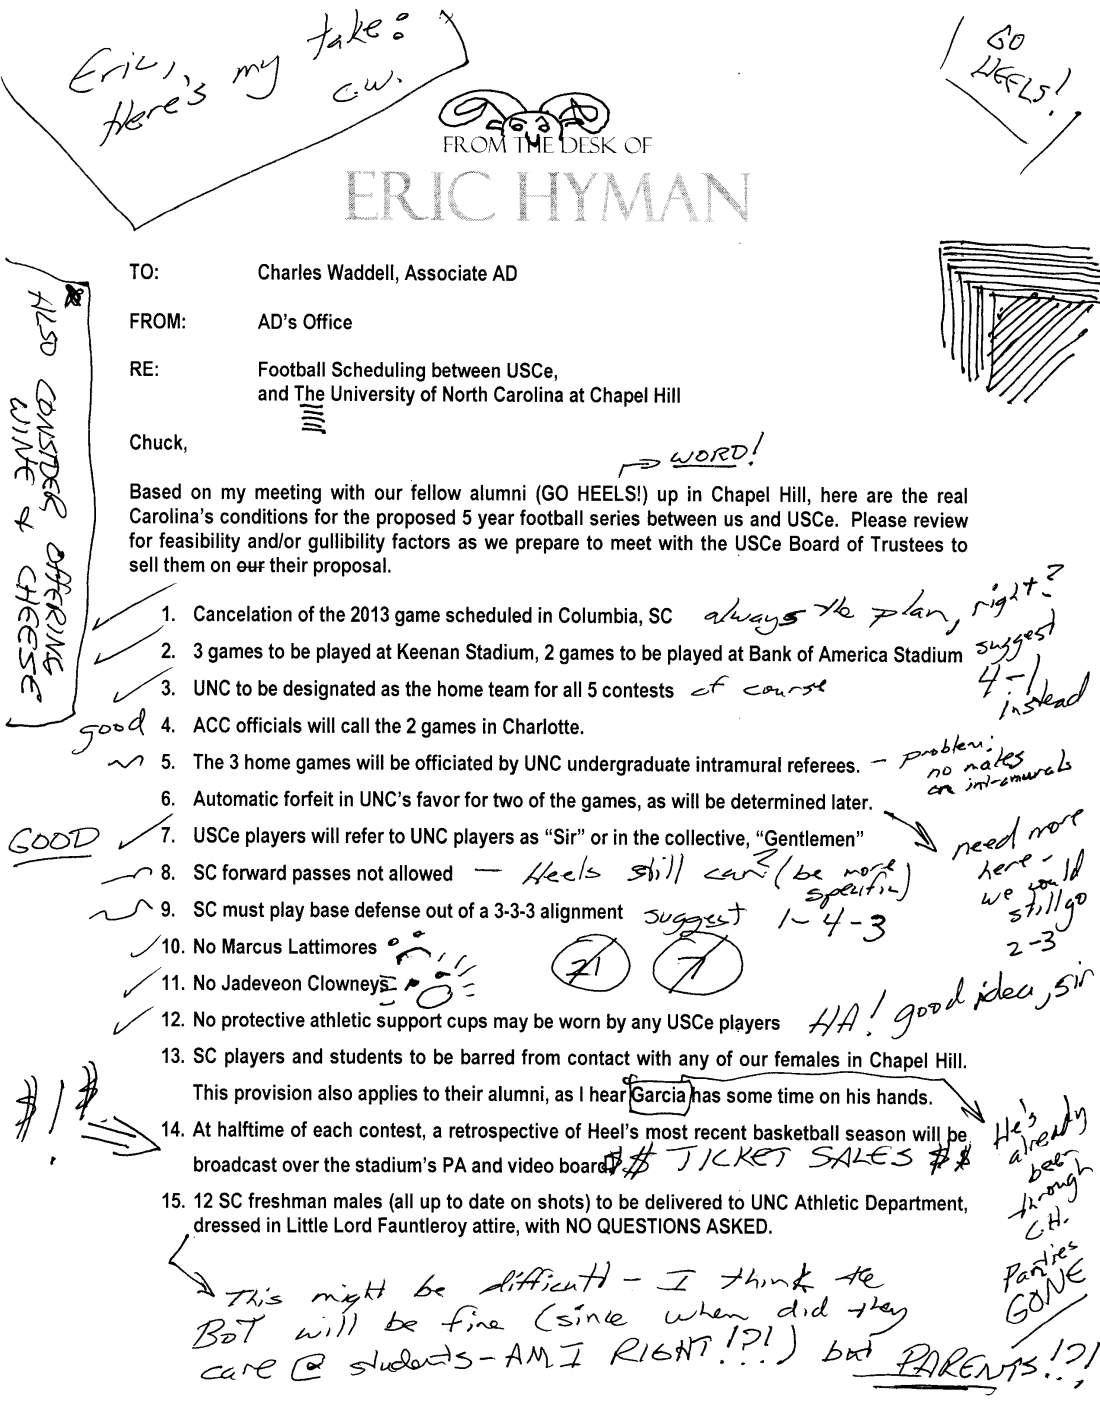 Eric,
Here's my take:
C.W.
GO
HEELS!
FROM THE DESK OF
ERIC HYMAN
TO: Charles Waddell, Associate AD
FROM: AD's Office
RE: Football Scheduling between USCe,
and The University of North Carolina at Chapel Hill
ALSO CONSIDER OFFERING
WINE & CHEESE
Chuck,
WORD!
Based on my meeting with our fellow alumni (GO HEELS!) up in Chapel Hill, here are the real
Carolina's conditions for the proposed 5 year football series between us and USCe. Please review
for feasibility and/or gullibility factors as we prepare to meet with the USCe Board of Trustees to
sell them on our their proposal.
1. Cancelation of the 2013 game scheduled in Columbia, SC always the plan, right?
2. 3 games to be played at Keenan Stadium, 2 games to be played at Bank of America Stadium
suggest
4-1
instead
3. UNC to be designated as the home team for all 5 contests of course
good 4. ACC officials will call the 2 games in Charlotte.
5. The 3 home games will be officiated by UNC undergraduate intramural referees. - problem:
no mates
on intramurals
6. Automatic forfeit in UNC's favor for two of the games, as will be determined later.
need more
here -
we would
still go
2-3
GOOD 7. USCe players will refer to UNC players as "Sir" or in the collective, "Gentlemen"
8. SC forward passes not allowed - Heels still can? (be more
specific)
9. SC must play base defense out of a 3-3-3 alignment suggest 1-4-3
10. No Marcus Lattimores
21 7
11. No Jadeveon Clowneys
12. No protective athletic support cups may be worn by any USCe players HA! good idea, sir
13. SC players and students to be barred from contact with any of our females in Chapel Hill.
This provision also applies to their alumni, as I hear Garcia has some time on his hands.
He's
already
been
through
C.H.
Parties
GONE
$!$
14. At halftime of each contest, a retrospective of Heel's most recent basketball season will be
broadcast over the stadium's PA and video board $$ TICKET SALES $$
15. 12 SC freshman males (all up to date on shots) to be delivered to UNC Athletic Department,
dressed in Little Lord Fauntleroy attire, with NO QUESTIONS ASKED.
This might be difficult - I think the
BOT will be fine (since when did they
care @ students - AM I RIGHT!?!) but PARENTS!?!